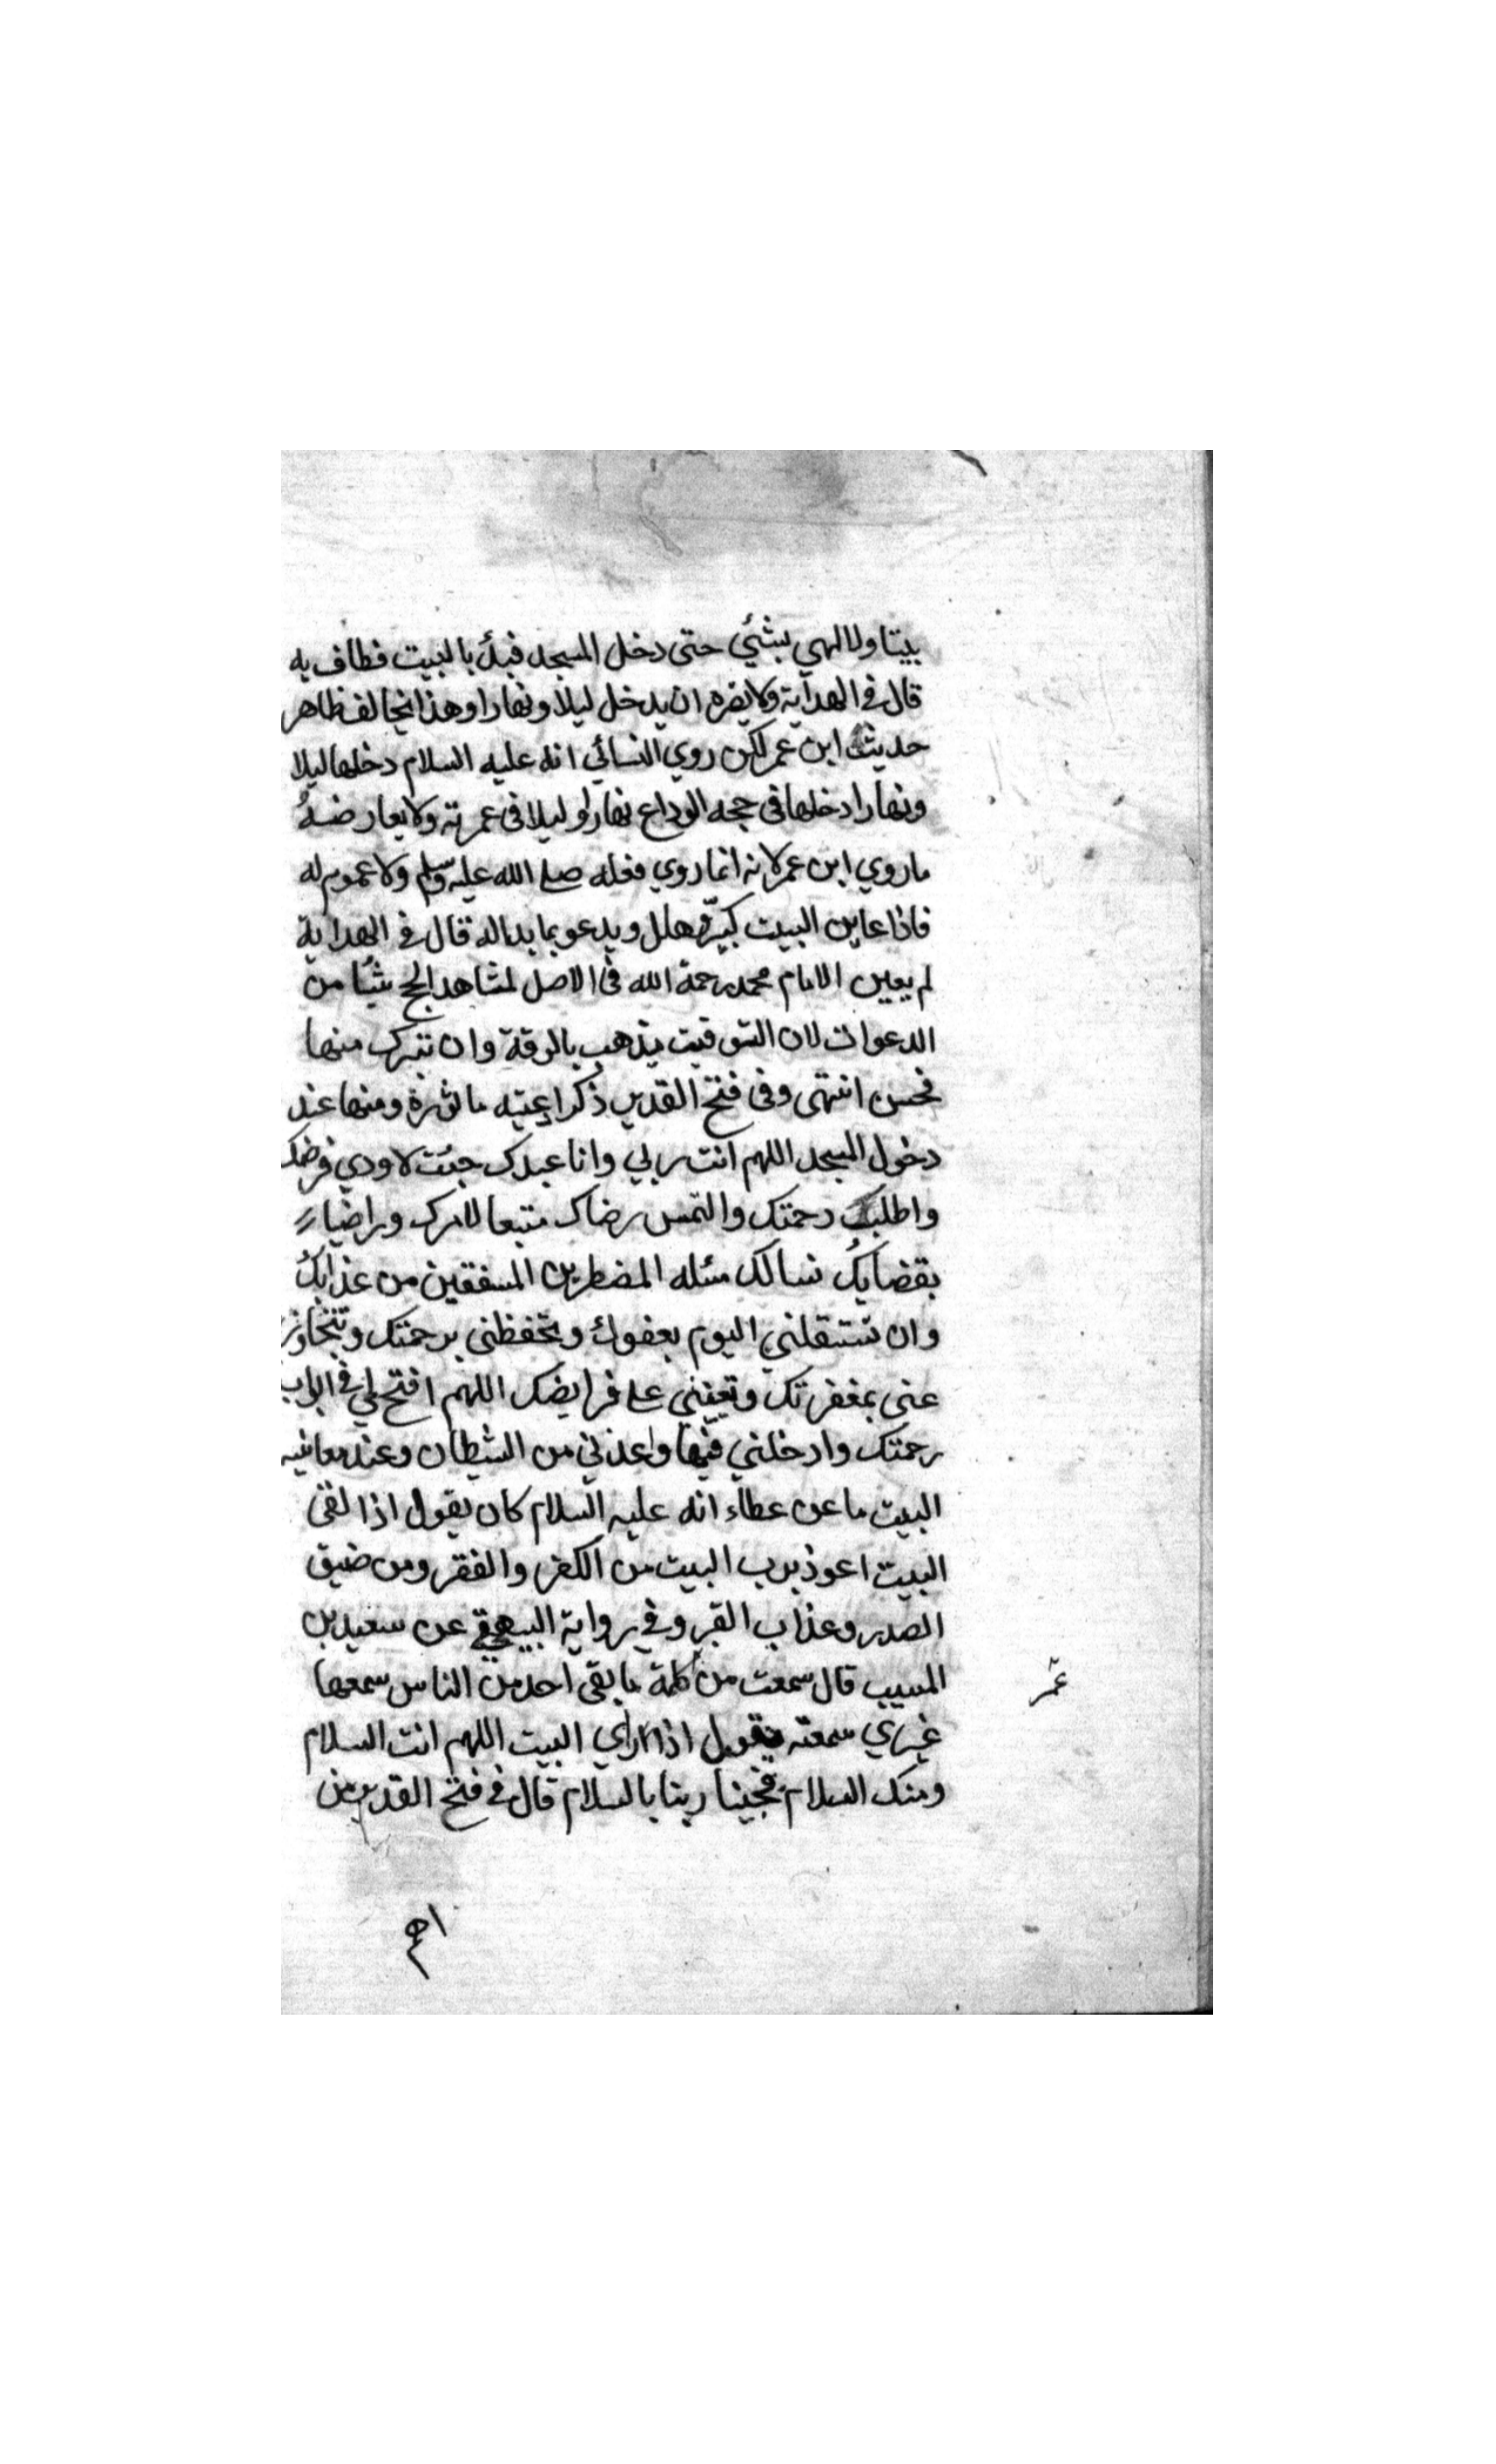 بيتا ولا لهي بشئي حتى دخل المسجد فبدأ بالبيت فطاف به
قال في الهداية ولا يضره ان يدخل ليلا ونهارا وهذا يخالف ظاهر
حديث ابن عمر لكن روي النسائي انه عليه السلام دخلها ليلا
ونهارا دخلها في حجه الوداع نهارا وليلا في عمرته ولا يعارضه
ما روي ابن عمر لانه انما روي فعله صلى الله عليه وسلم ولا عموم له
فاذا عاين البيت كبر وهلل ويدعو بما بدا له قال في الهداية
لم يعين الامام محمد رحمة الله في الاصل لمشاهد الحج شيئا من
الدعوات لان التوقيت يذهب بالرقة وان تبرك منها
فحسن انتهى وفي فتح القدير ذكر ادعيته ماثورة ومنها عند
دخول المسجد اللهم انت ربي وانا عبدك جئت لاودي فرضك
واطلب رحمتك والتمس رضاك متبعا لامرك وراضيا
بقضايك نسالك مسئله المضطرين المشفقين من عذابك
وان تستقبلني اليوم بعفوك وتحفظني برحمتك وتتجاوز
عني بمغفرتك وتعينني على فرايضك اللهم افتح لي في ابواب
رحمتك وادخلني فيها واعذني من الشيطان وعند معاينه
البيت ما عن عطاء انه عليه السلام كان يقول اذا لقى
البيت اعوذ برب البيت من الكفر والفقر ومن ضيق
الصدر وعذاب القبر وفي رواية البيهقي عن سعيد بن
المسيب قال سمعت من كلمة ما بقى احد من الناس سمعها
عمر
غيري سمعته يقول اذا راي البيت اللهم انت السلام
ومنك السلام فحينا ربنا بالسلام قال في فتح القدير من